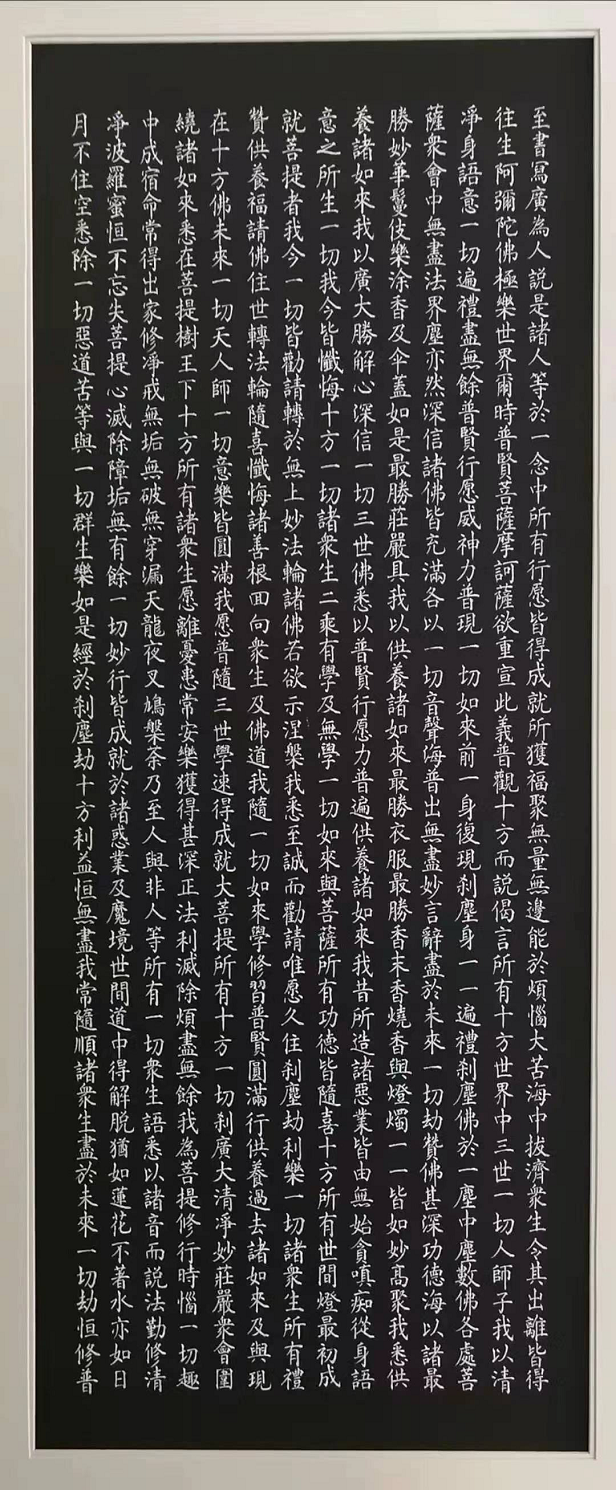 至書寫廣為人說是諸人等於一念中所有行愿皆得成就所獲福聚無量無邊能於煩惱大苦海中拔濟衆生令其出離皆得
往生阿彌陀佛極樂世界爾時普賢菩薩摩訶薩欲重宣此義普觀十方而說偈言所有十方世界中三世一切人師子我以清
淨身語意一切遍禮盡無餘普賢行愿威神力普現一切如來前一身復現刹塵身一一遍禮刹塵佛於一塵中塵數佛各處菩
薩衆會中無盡法界塵亦然深信諸佛皆充滿各以一切音聲海普出無盡妙言辭盡於未來一切劫贊佛甚深功德海以諸最
勝妙華鬘伎樂涂香及傘蓋如是最勝莊嚴具我以供養諸如來最勝衣服最勝香末香燒香與燈燭一一皆如妙高聚我悉供
養諸如來我以廣大勝解心深信一切三世佛悉以普賢行愿力普遍供養諸如來我昔所造諸惡業皆由無始貪嗔痴從身語
意之所生一切我今皆懺悔十方一切諸衆生二乘有學及無學一切如來與菩薩所有功德皆隨喜十方所有世間燈最初成
就菩提者我今一切皆勸請轉於無上妙法輪諸佛若欲示涅槃我悉至誠而勸請唯愿久住刹塵劫利樂一切諸衆生所有禮
贊供養福請佛住世轉法輪隨喜懺悔諸善根回向衆生及佛道我隨一切如來學修習普賢圓滿行供養過去諸如來及與現
在十方佛未來一切天人師一切意樂皆圓滿我愿普隨三世學速得成就大菩提所有十方一切刹廣大清淨妙莊嚴衆會圍
繞諸如來悉在菩提樹王下十方所有諸衆生愿離憂患常安樂獲得甚深正法利滅除煩盡無餘我為菩提修行時惱一切趣
中成宿命常得出家修淨戒無垢無破無穿漏天龍夜叉鳩槃荼乃至人與非人等所有一切衆生語悉以諸音而說法勤修清
淨波羅蜜恒不忘失菩提心滅除障垢無有餘一切妙行皆成就於諸惑業及魔境世間道中得解脫猶如蓮花不著水亦如日
月不住空悉除一切惡道苦等與一切群生樂如是經於刹塵劫十方利益恒無盡我常隨順諸衆生盡於未來一切劫恒修普